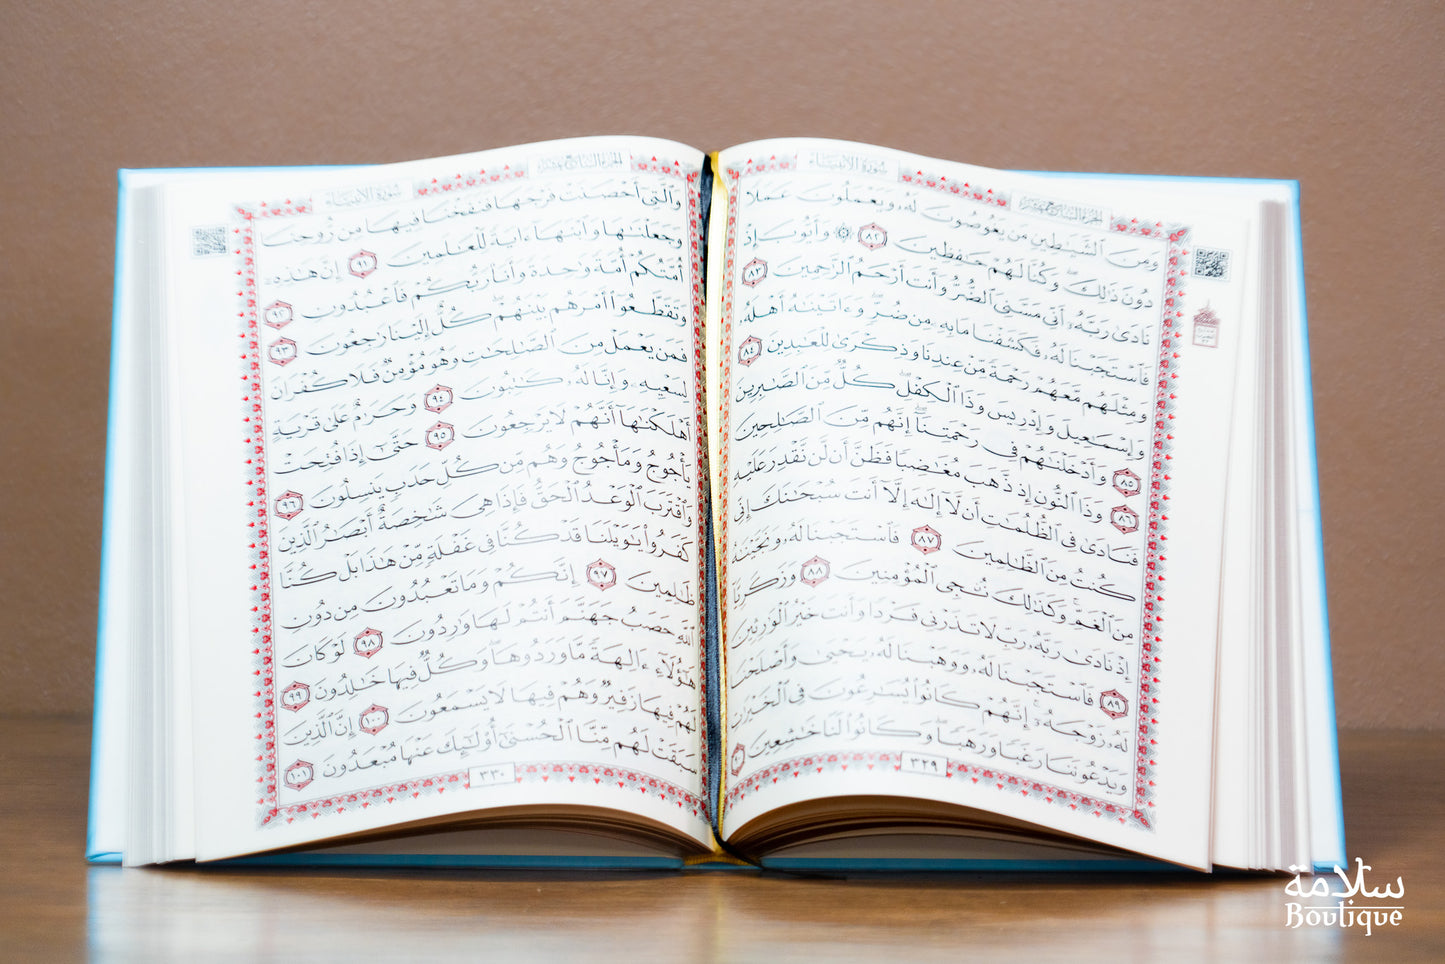 سُورَةُ الأَنبِيَاءِ
الجُزءُ السَّابِعَ عَشَرَ
وَمِنَ ٱلشَّيَٰطِينِ مَن يَغُوصُونَ لَهُۥ وَيَعْمَلُونَ عَمَلًا
دُونَ ذَٰلِكَۖ وَكُنَّا لَهُمْ حَٰفِظِينَ ٨٢ ۞ وَأَيُّوبَ إِذْ
نَادَىٰ رَبَّهُۥٓ أَنِّى مَسَّنِىَ ٱلضُّرُّ وَأَنتَ أَرْحَمُ ٱلرَّٰحِمِينَ ٨٣
فَٱسْتَجَبْنَا لَهُۥ فَكَشَفْنَا مَا بِهِۦ مِن ضُرٍّۖ وَءَاتَيْنَٰهُ أَهْلَهُۥ
وَمِثْلَهُم مَّعَهُمْ رَحْمَةً مِّنْ عِندِنَا وَذِكْرَىٰ لِلْعَٰبِدِينَ ٨٤
وَإِسْمَٰعِيلَ وَإِدْرِيسَ وَذَا ٱلْكِفْلِۖ كُلٌّ مِّنَ ٱلصَّٰبِرِينَ
٨٥ وَأَدْخَلْنَٰهُمْ فِى رَحْمَتِنَآۖ إِنَّهُم مِّنَ ٱلصَّٰلِحِينَ
٨٦ وَذَا ٱلنُّونِ إِذ ذَّهَبَ مُغَٰضِبًا فَظَنَّ أَن لَّن نَّقْدِرَ عَلَيْهِ
فَنَادَىٰ فِى ٱلظُّلُمَٰتِ أَن لَّآ إِلَٰهَ إِلَّآ أَنتَ سُبْحَٰنَكَ إِنِّى
كُنتُ مِنَ ٱلظَّٰلِمِينَ ٨٧ فَٱسْتَجَبْنَا لَهُۥ وَنَجَّيْنَٰهُ
مِنَ ٱلْغَمِّۚ وَكَذَٰلِكَ نُۨجِى ٱلْمُؤْمِنِينَ ٨٨ وَزَكَرِيَّآ
إِذْ نَادَىٰ رَبَّهُۥ رَبِّ لَا تَذَرْنِى فَرْدًا وَأَنتَ خَيْرُ ٱلْوَٰرِثِينَ
٨٩ فَٱسْتَجَبْنَا لَهُۥ وَوَهَبْنَا لَهُۥ يَحْيَىٰ وَأَصْلَحْنَا
لَهُۥ زَوْجَهُۥٓۚ إِنَّهُمْ كَانُوا۟ يُسَٰرِعُونَ فِى ٱلْخَيْرَٰتِ
وَيَدْعُونَنَا رَغَبًا وَرَهَبًاۖ وَكَانُوا۟ لَنَا خَٰشِعِينَ ٩٠
٣٢٩
الجُزءُ السَّابِعَ عَشَرَ
سُورَةُ الأَنبِيَاءِ
وَٱلَّتِىٓ أَحْصَنَتْ فَرْجَهَا فَنَفَخْنَا فِيهَا مِن رُّوحِنَا
وَجَعَلْنَٰهَا وَٱبْنَهَآ ءَايَةً لِّلْعَٰلَمِينَ ٩١ إِنَّ هَٰذِهِۦٓ
أُمَّتُكُمْ أُمَّةً وَٰحِدَةً وَأَنَا۠ رَبُّكُمْ فَٱعْبُدُونِ ٩٢
وَتَقَطَّعُوٓا۟ أَمْرَهُم بَيْنَهُمْۖ كُلٌّ إِلَيْنَا رَٰجِعُونَ ٩٣
فَمَن يَعْمَلْ مِنَ ٱلصَّٰلِحَٰتِ وَهُوَ مُؤْمِنٌ فَلَا كُفْرَانَ
لِسَعْيِهِۦ وَإِنَّا لَهُۥ كَٰتِبُونَ ٩٤ وَحَرَٰمٌ عَلَىٰ قَرْيَةٍ
أَهْلَكْنَٰهَآ أَنَّهُمْ لَا يَرْجِعُونَ ٩٥ حَتَّىٰٓ إِذَا فُتِحَتْ
يَأْجُوجُ وَمَأْجُوجُ وَهُم مِّن كُلِّ حَدَبٍ يَنسِلُونَ ٩٦
وَٱقْتَرَبَ ٱلْوَعْدُ ٱلْحَقُّ فَإِذَا هِىَ شَٰخِصَةٌ أَبْصَٰرُ ٱلَّذِينَ
كَفَرُوا۟ يَٰوَيْلَنَا قَدْ كُنَّا فِى غَفْلَةٍ مِّنْ هَٰذَا بَلْ كُنَّا
ظَٰلِمِينَ ٩٧ إِنَّكُمْ وَمَا تَعْبُدُونَ مِن دُونِ
ٱللَّهِ حَصَبُ جَهَنَّمَ أَنتُمْ لَهَا وَٰرِدُونَ ٩٨ لَوْ كَانَ
هَٰٓؤُلَآءِ ءَالِهَةً مَّا وَرَدُوهَاۖ وَكُلٌّ فِيهَا خَٰلِدُونَ ٩٩
لَهُمْ فِيهَا زَفِيرٌ وَهُمْ فِيهَا لَا يَسْمَعُونَ ١٠٠ إِنَّ ٱلَّذِينَ
سَبَقَتْ لَهُم مِّنَّا ٱلْحُسْنَىٰٓ أُو۟لَٰٓئِكَ عَنْهَا مُبْعَدُونَ ١٠١
٣٣٠
سلامة
Boutique